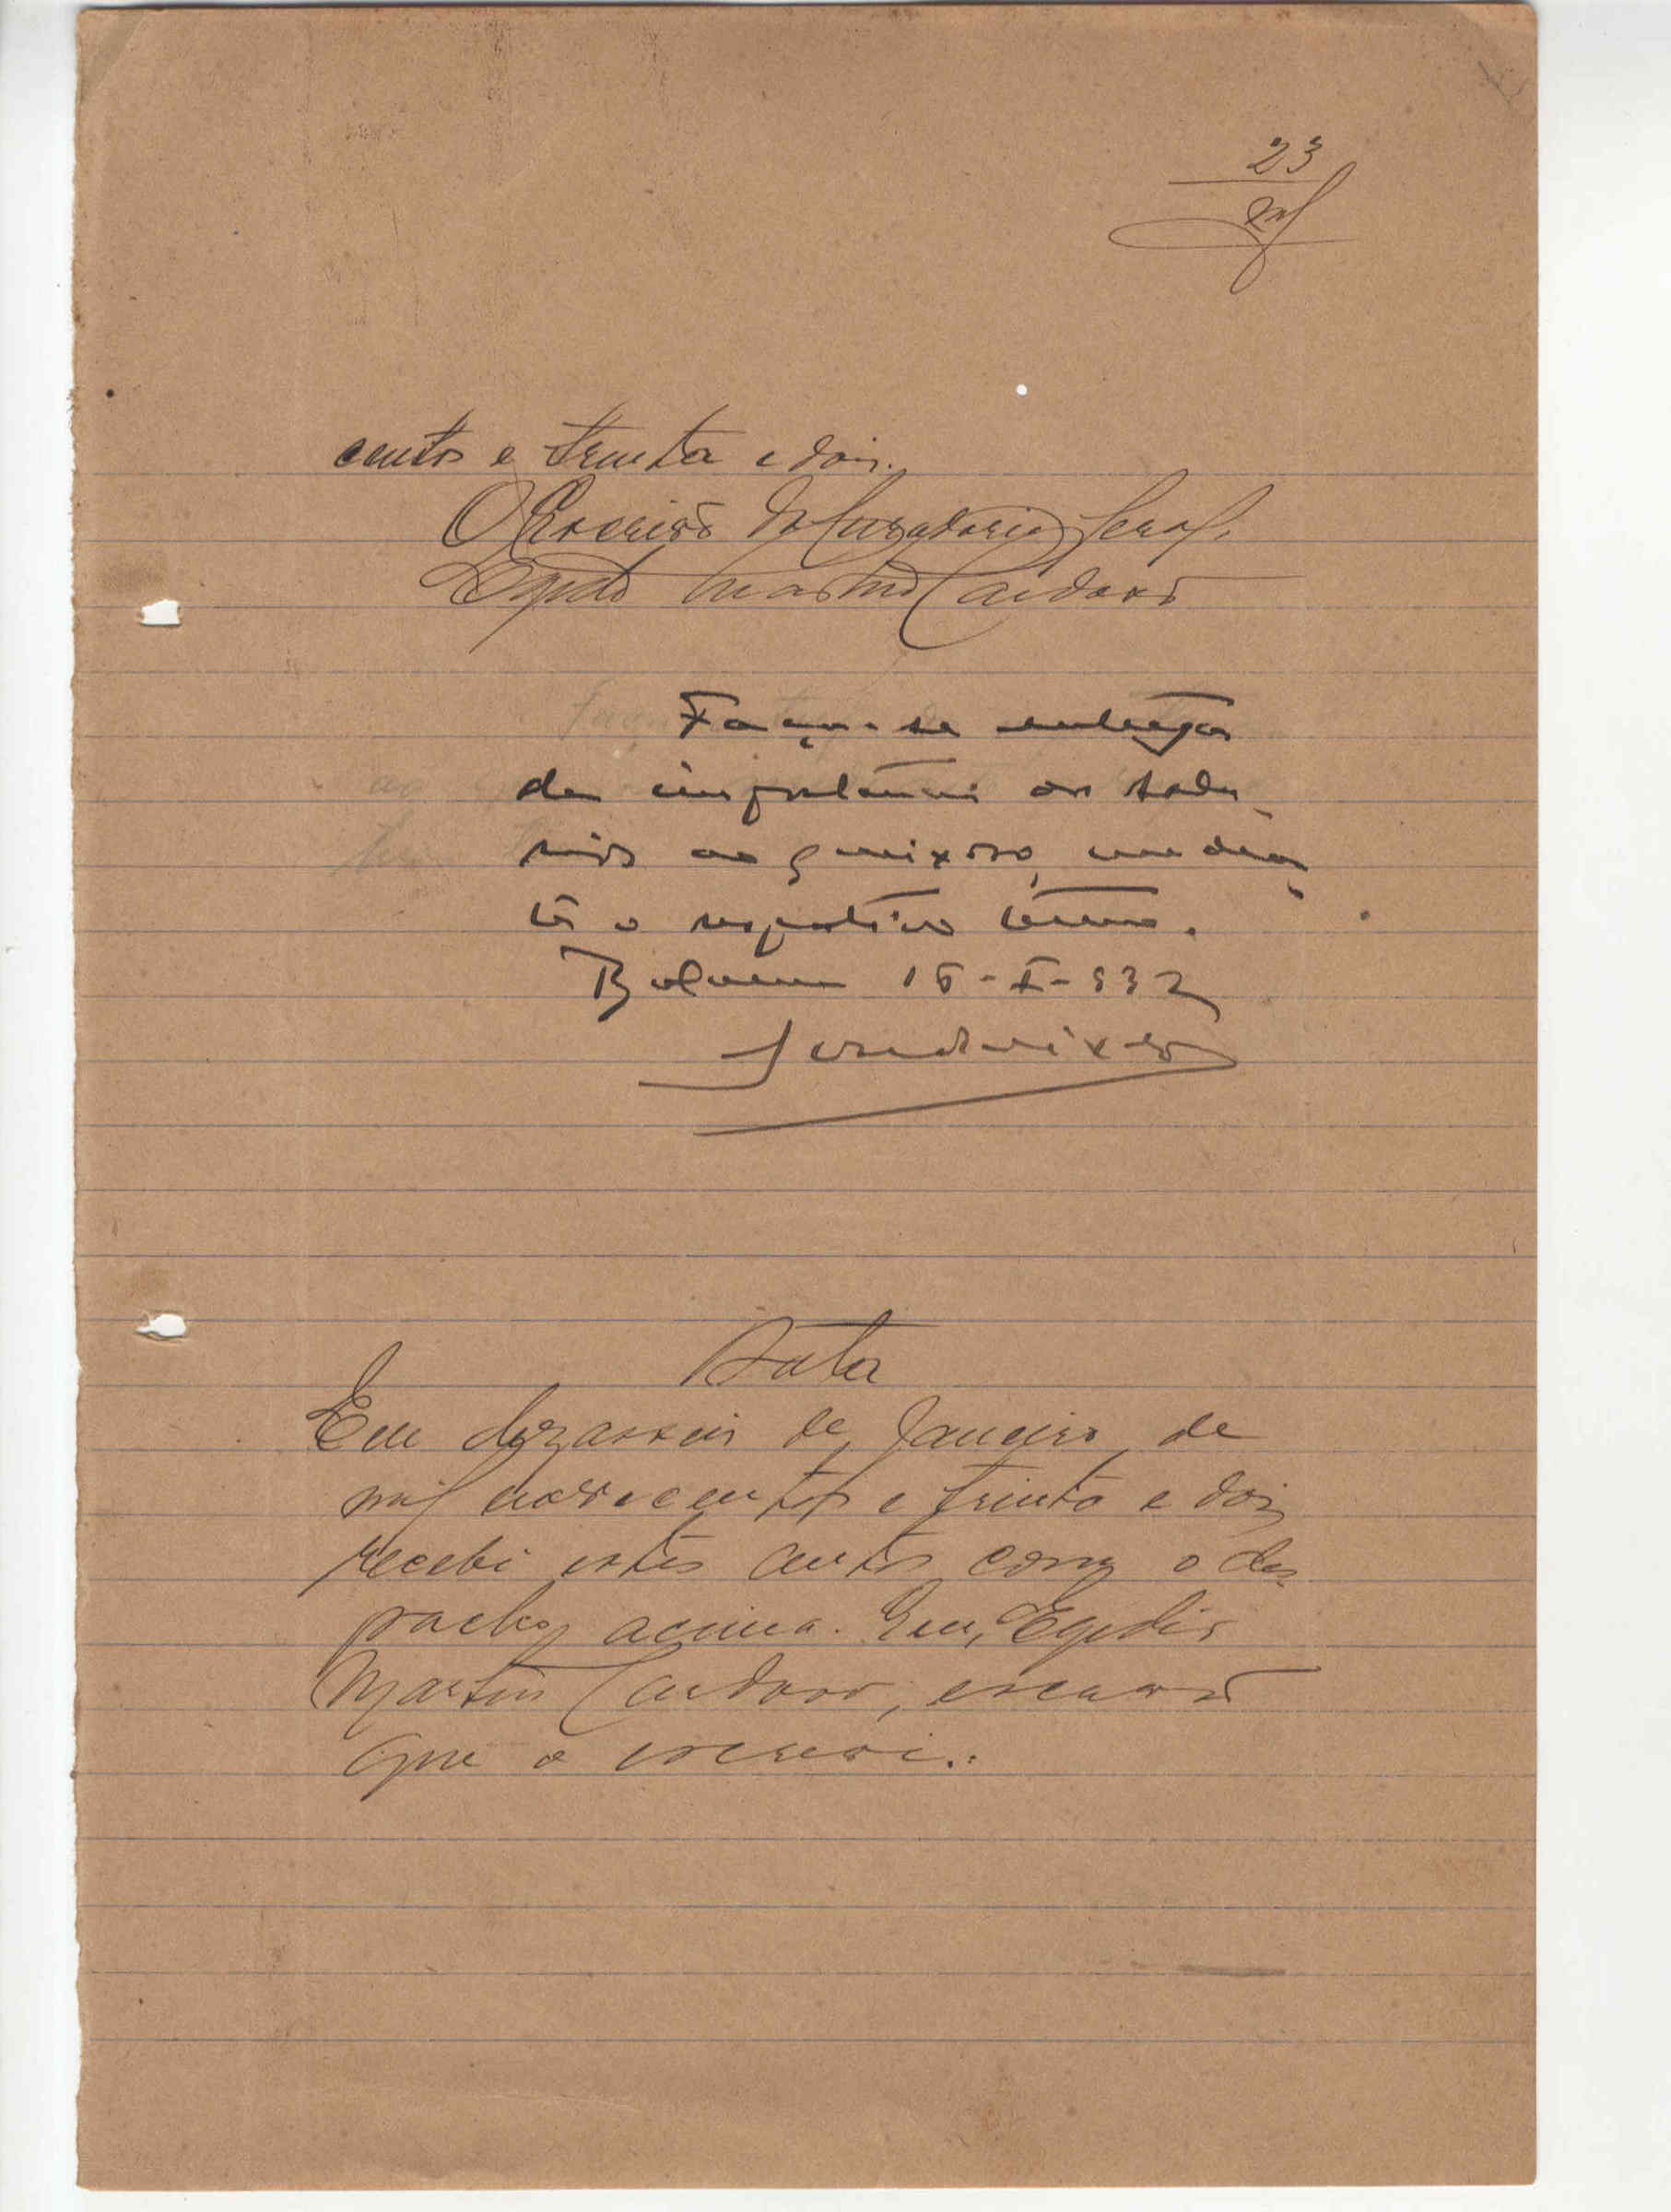 23
centos e trinta e dois.
O Escrivão da Curadoria Geral,
Egidio Martins Cardoso
Faça-se entrega
da importancia os salá
rios ao queixoso, median
te o respectivo termo.
Belem 16-I-932
Data
Em dezasseis de Janeiro de
mil novecentos e trinta e dois
recebi estes autos com o des-
pacho acima. Eu, Egidio
Martins Cardoso, escrivão
que o escrevi.: